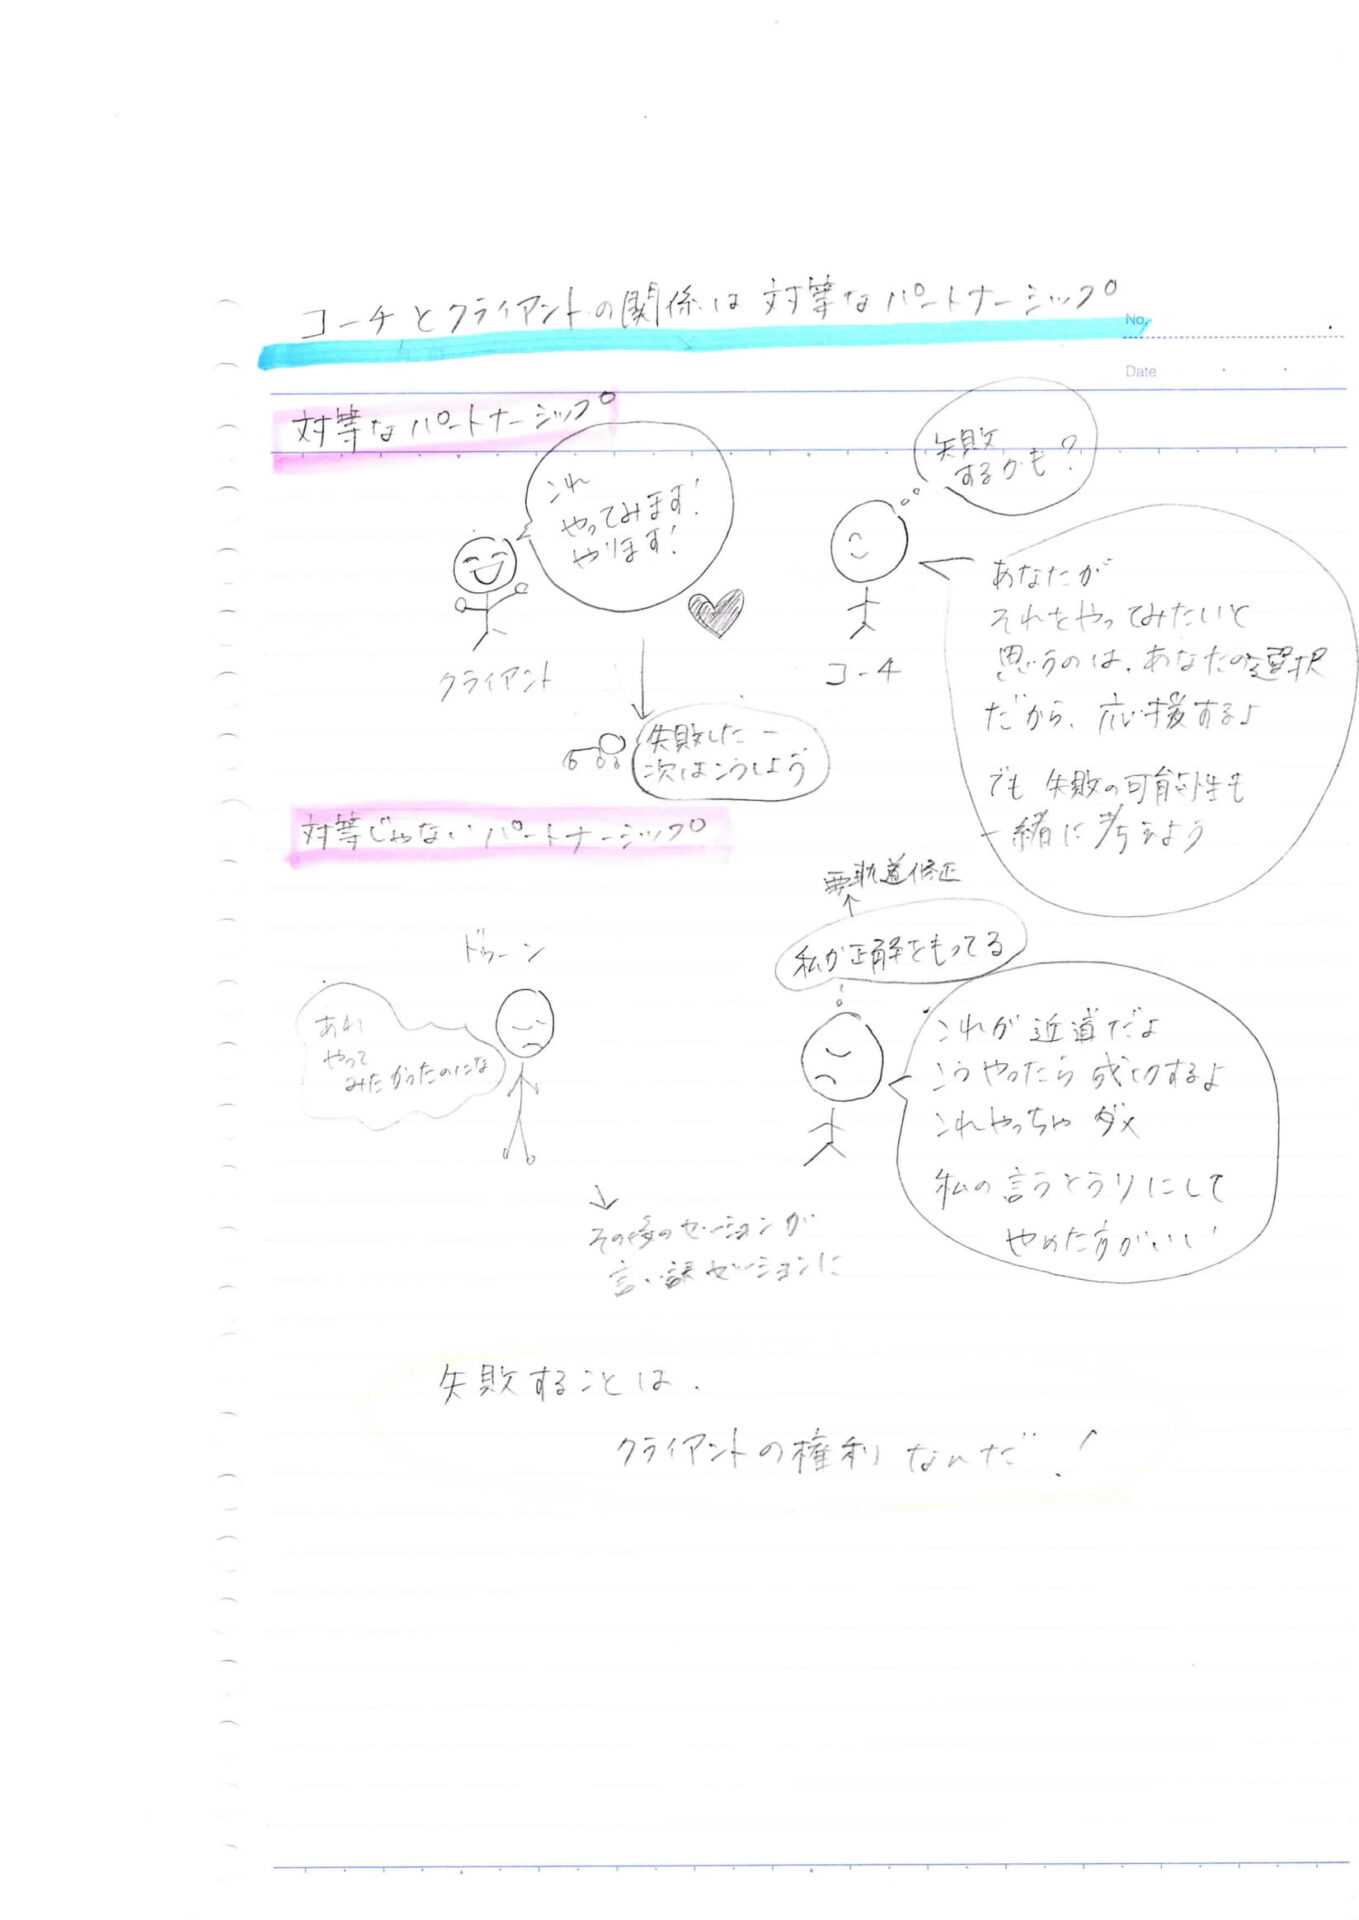 コーチとクライアントの関係は対等なパートナーシップ
No.
Date
対等なパートナーシップ
これ
やってみます!
やります!
クライアント
失敗
するかも?
コーチ
あなたが
それをやってみたいと
思うのは、あなたの選択
だから、応援するよ
でも 失敗の可能性も
一緒に考えよう
失敗したー
次はこうしよう
対等じゃないパートナーシップ
要軌道修正
私が正解をもってる
ドゥーン
あれ
やって
みたかったのにな
これが近道だよ
こうやったら成功するよ
これやっちゃダメ
私の言うとうりにして
やめた方がいい
その後のセッションが
言い訳セッションに
失敗することは、
クライアントの権利なんだ!